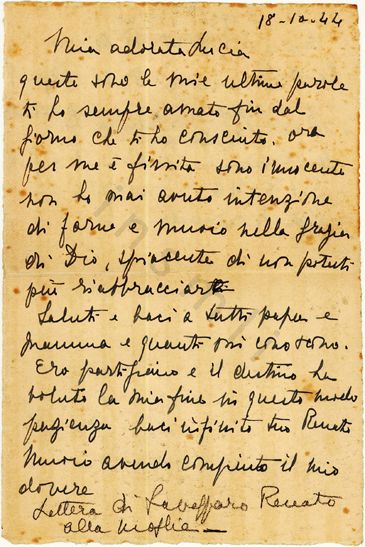 18-10-44
Mia adorata Lucia
queste sono le mie ultime parole
ti ho sempre amato fin dal
giorno che ti ho consciuto. ora
per me è finita sono innocente
non ho mai avuto intenzione
di farne e muoio nella grazia
di Dio, spiacente di non poterti
più riabbracciarti
Saluti e baci a tutti papa e
mamma e quanti mi conoscono.
Ero partigiano e il destino ha
voluto la mia fine in questo modo
pazienza baci infiniti tuo Renato
Muoio avendo compiuto il mio
dovere
Lettera di Renato
alla moglie